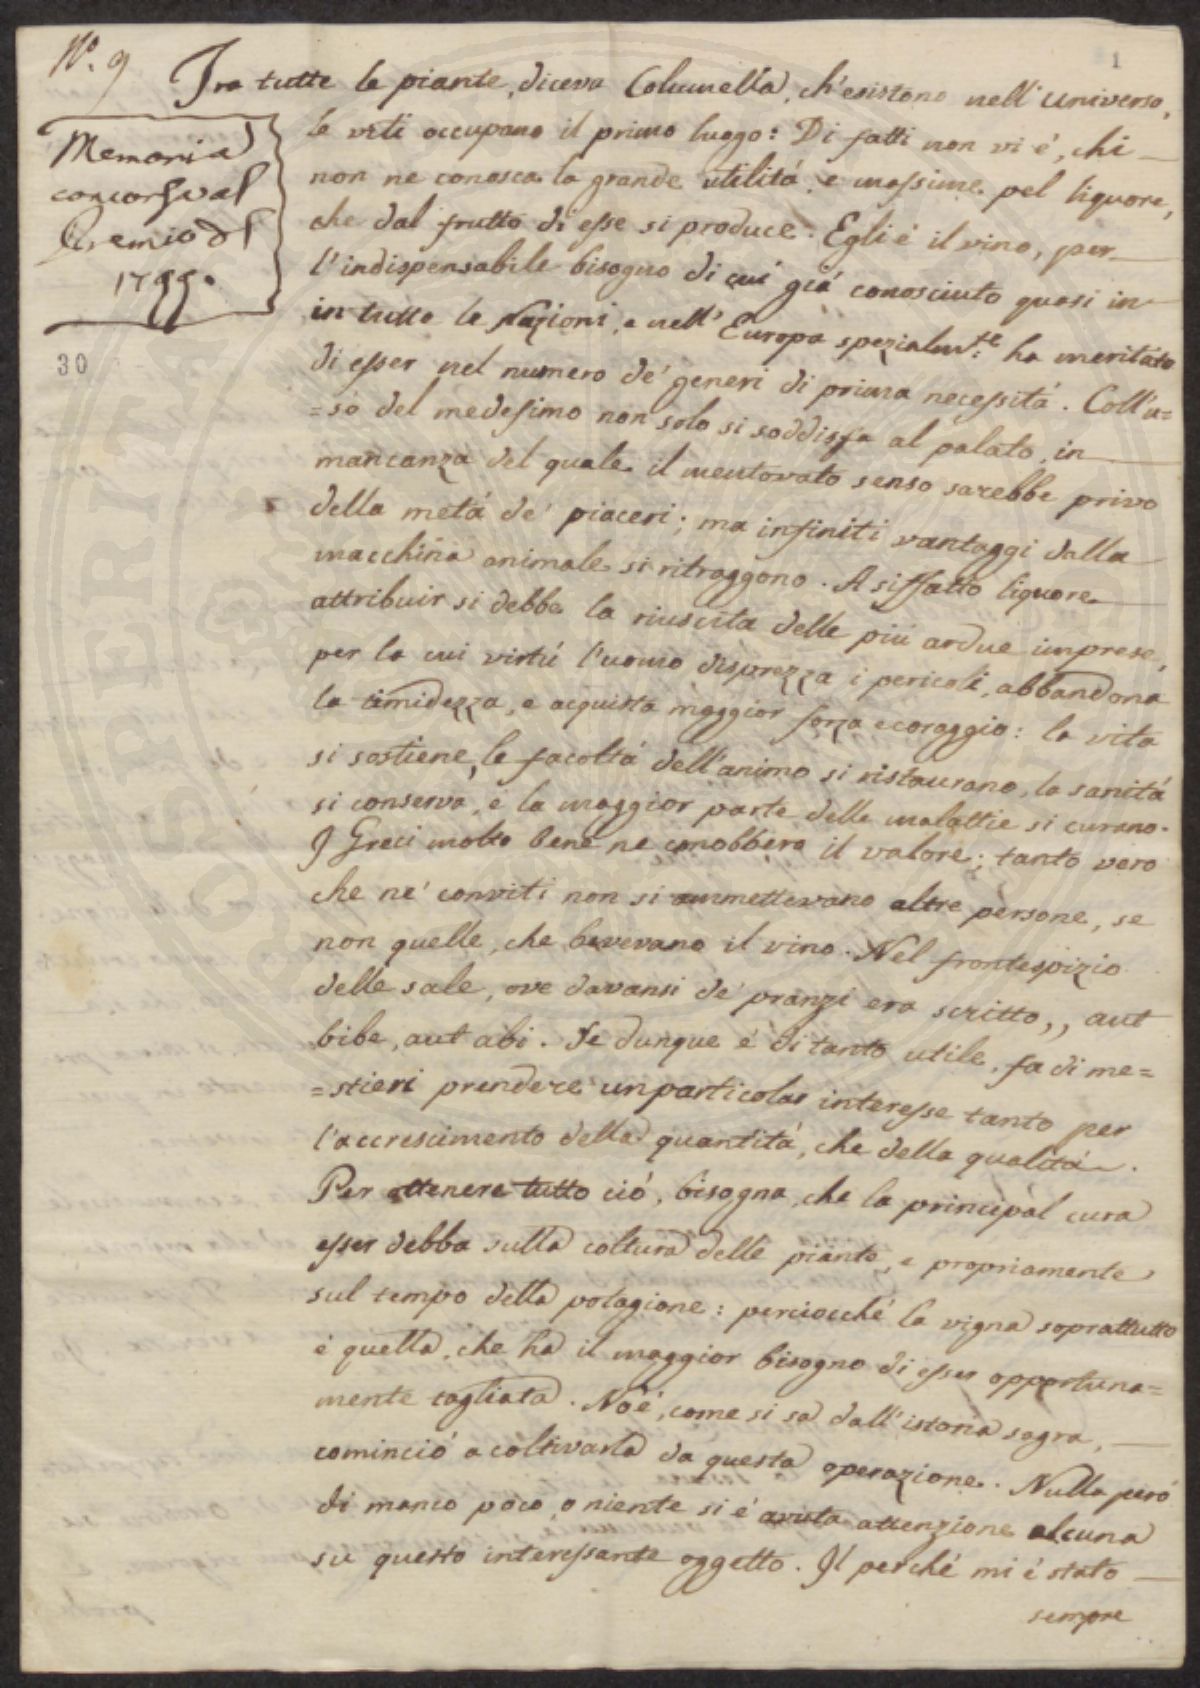 N.° 9
1
Memoria
concorsa al
Premio del
1799.
30
Tra tutte le piante, diceva Columella, ch'esistono nell'universo,
le viti occupano il primo luogo: Di fatti non vi é, chi
non ne conosca la grande utilitá, e massime pel liquore,
che dal frutto di esse si produce. Egli é il vino, per
l'indispensabile bisogno di cui giá conosciuto quasi in
in tutte le Nazioni, e nell'Europa spezialm.te ha meritato
di esser nel numero de' generi di prima necessitá. Coll'u=
=so del medesimo non solo si soddisfa al palato, in
mancanza del quale il mentovato senso sarebbe privo
della metá de' piaceri; ma infiniti vantaggi dalla
macchina animale si ritraggono. A siffatto liquore
attribuir si debbe la riuscita delle piú ardue imprese,
per la cui virtú l'uomo disprezza i pericoli, abbandona
la timidezza, e acquista maggior forza e coraggio: la vita
si sostiene, le facoltá dell'animo si ristaurano, la sanitá
si conserva, e la maggior parte delle malattie si curano.
I Greci molto bene ne conobbero il valore; tanto vero
che ne' conviti non si ammettevano altre persone, se
non quelle, che bevevano il vino. Nel frontespizio
delle sale, ove davansi de' pranzi era scritto,, aut
bibe, aut abi. Se dunque é di tanto utile, fa di me=
=stieri prendere un particolar interesse tanto per
l'accrescimento della quantitá, che della qualitá.
Per ottenere tutto ció, bisogna, che la principal cura
esser debba sulla coltura delle piante, e propriamente
sul tempo della potagione: perciocché la vigna soprattutto
é quella, che ha il maggior bisogno di esser opportuna=
mente tagliata. Noé, come si sa dall'istoria sagra,
cominció a coltivarla da questa operazione. Nulla peró
di manco poco, o niente si é avuta attenzione alcuna
su questo interessante oggetto. Il perché mi é stato
sempre